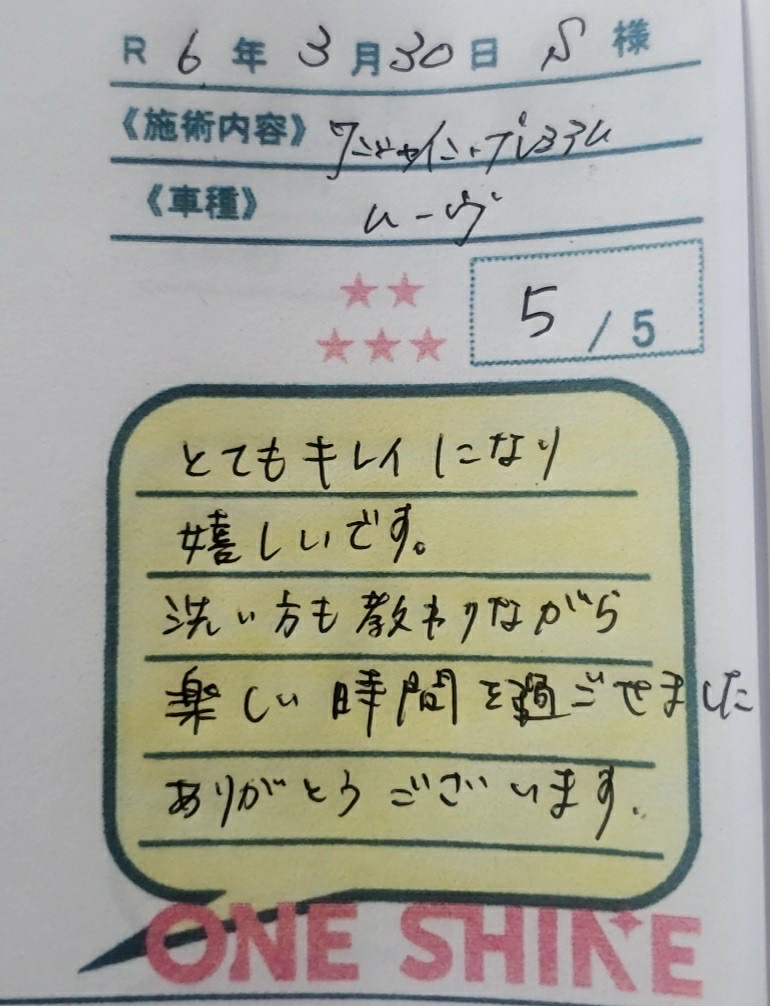 R 6 年 3 月 30 日 S 様
《施術内容》 ワンシャイン・プレミアム
《車種》 ムーヴ
5 / 5
とてもキレイになり
嬉しいです。
洗い方も教わりながら
楽しい時間を過ごせました
ありがとうございます.
ONE SHINE